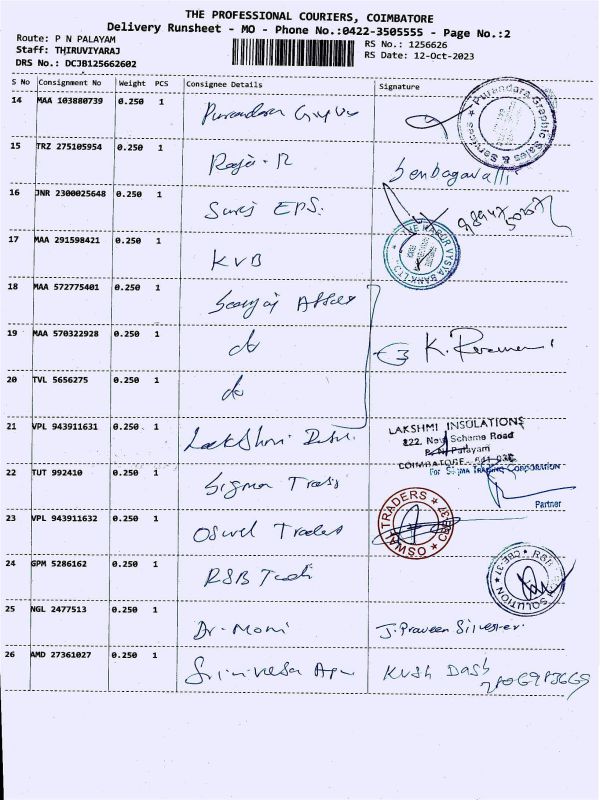 THE PROFESSIONAL COURIERS, COIMBATORE
Delivery Runsheet - MO - Phone No.:0422-3505555 - Page No.:2
Route: P N PALAYAM
RS No.: 1256626
Staff: THIRUVIYARAJ
RS Date: 12-Oct-2023
DRS No.: DCJB125662602
S No Consignment No Weight PCS Consignee Details Signature
14 MAA 103880739 0.250 1 Purandara
Purandara Graphic Sales & Services
15 TRZ 275105954 0.250 1 Raja. R Senbagavalli
16 JNR 2300025648 0.250 1 Suraj EPS.
17 MAA 291598421 0.250 1 KVB
THE KARUR VYSYA BANK LTD.
18 MAA 572775401 0.250 1
19 MAA 570322928 0.250 1 do K.
20 TVL 5656275 0.250 1 do
21 VPL 943911631 0.250 1 Lakshmi
LAKSHMI INSULATIONS
822, New Scheme Road
P. N. Palayam
COIMBATORE - 641 037
22 TUT 992410 0.250 1 Sigma Trads
For SIGMA TRADING CORPORATION
Partner
23 VPL 943911632 0.250 1 Oswal Trades
OSWAL TRADERS CBE-37
24 GPM 5286162 0.250 1 RSB Tech
SOLUTION CBE-37
25 NGL 2477513 0.250 1 Dr. Moni J. Praveen Silvester.
26 AMD 27361027 0.250 1 Srinivasa Kush Dash